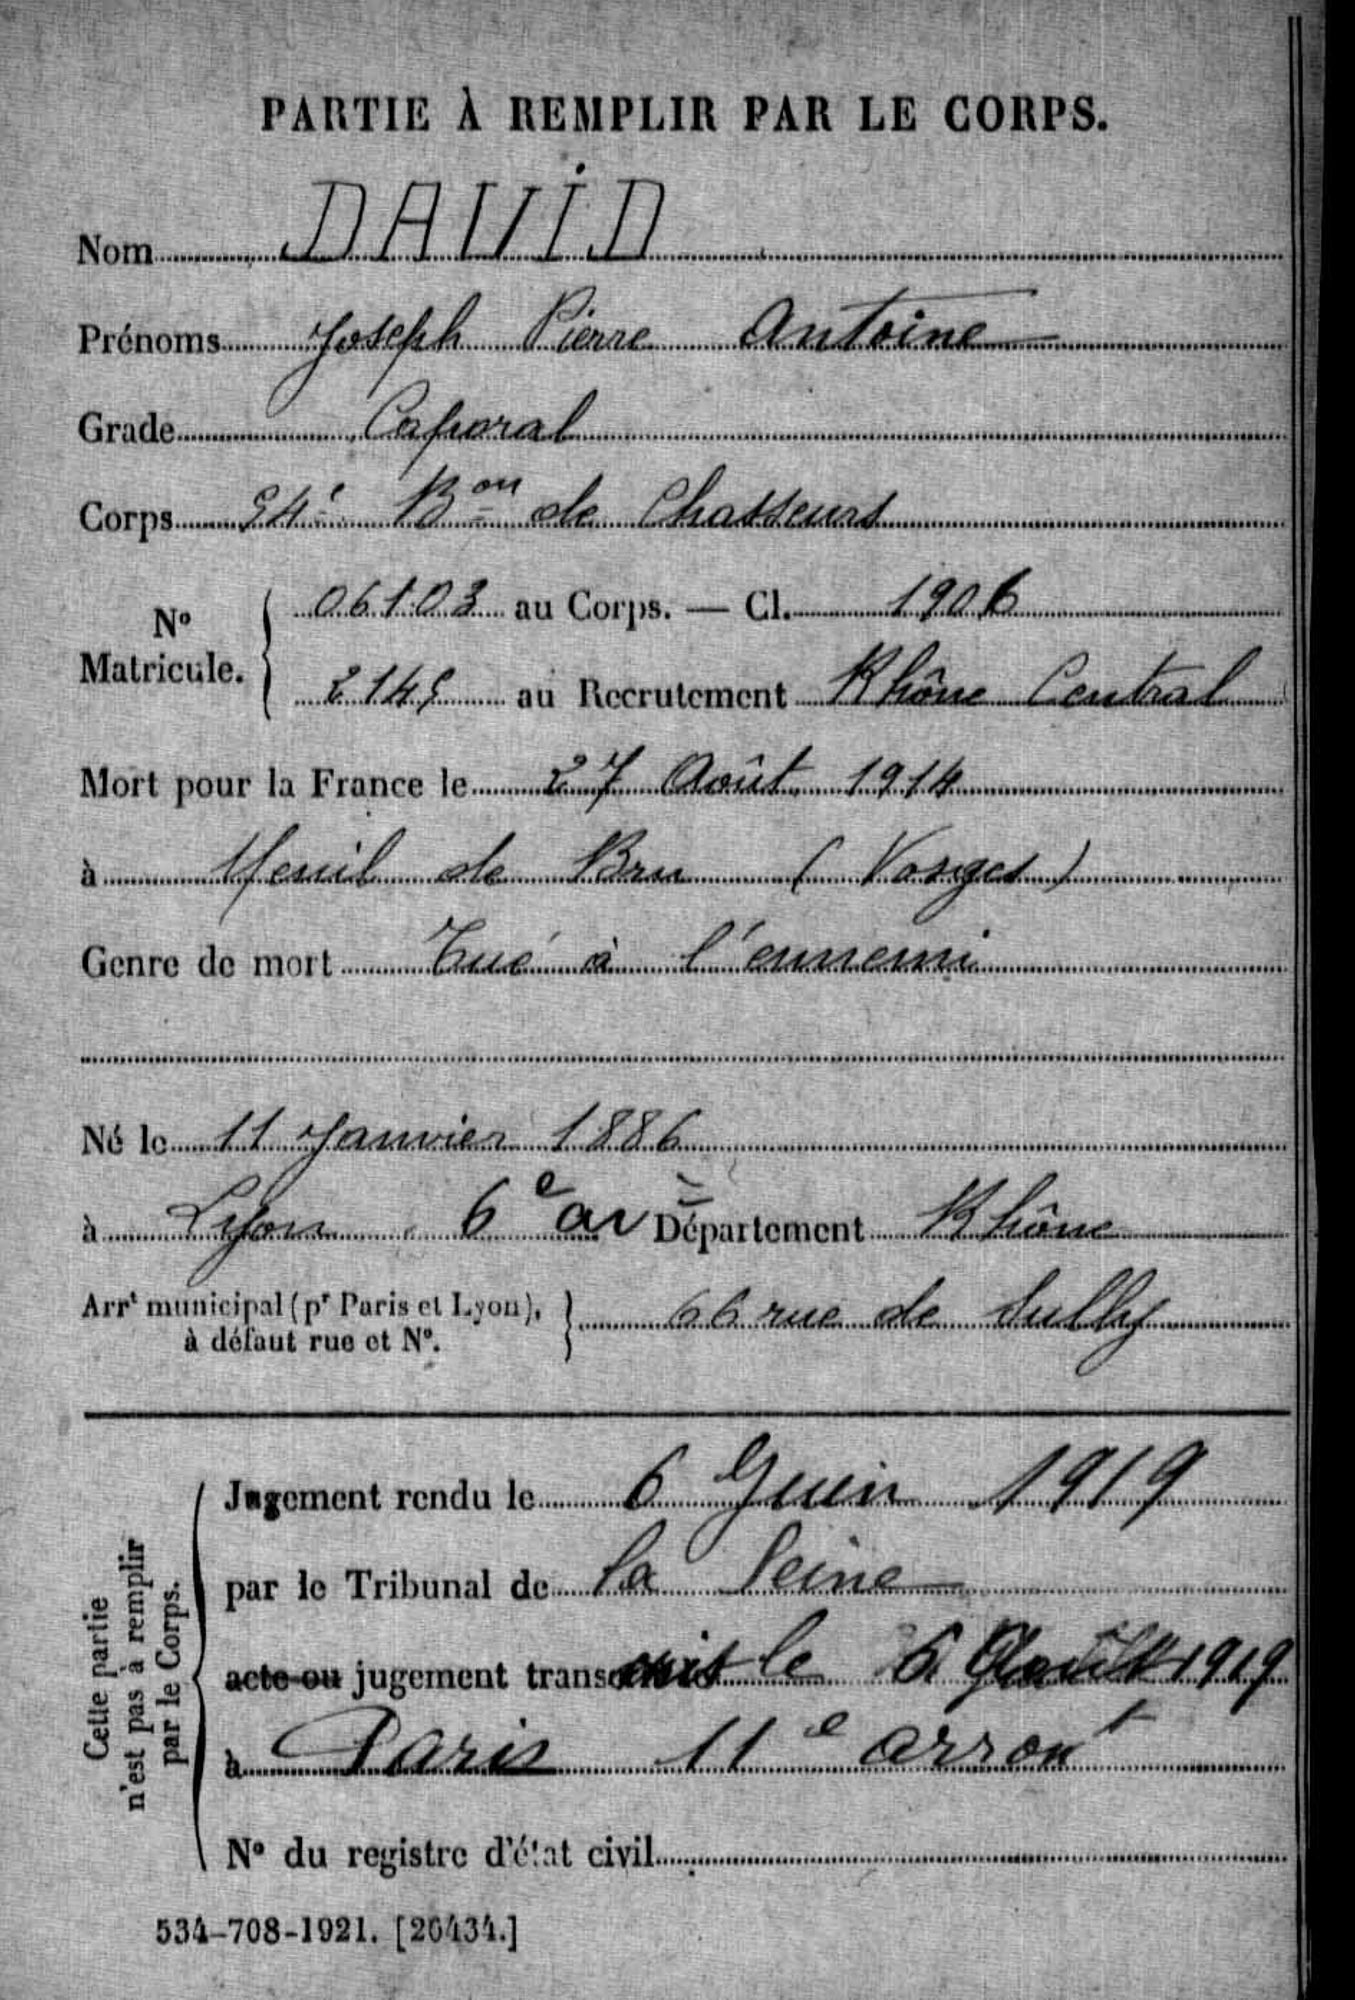 PARTIE À REMPLIR PAR LE CORPS.
Nom DAVID
Prénoms Joseph Pierre Antoine
Grade Caporal
Corps 54e Bon de Chasseurs
No Matricule. 06103 au Corps. — Cl. 1906
2145 au Recrutement Rhône Central
Mort pour la France le 27 Août 1914
à Menil de Bru (Vosges)
Genre de mort Tué à l'ennemi
Né le 11 Janvier 1886
à Lyon 6e ar Département Rhône
Arrt municipal (pr Paris et Lyon), à défaut rue et No. 66 rue de Sully
Cette partie n'est pas à remplir par le Corps.
Jugement rendu le 6 Juin 1919
par le Tribunal de la Seine
acte ou jugement transcrit le 6 Août 1919
à Paris 11e arront
No du registre d'état civil
534-708-1921. [26434.]